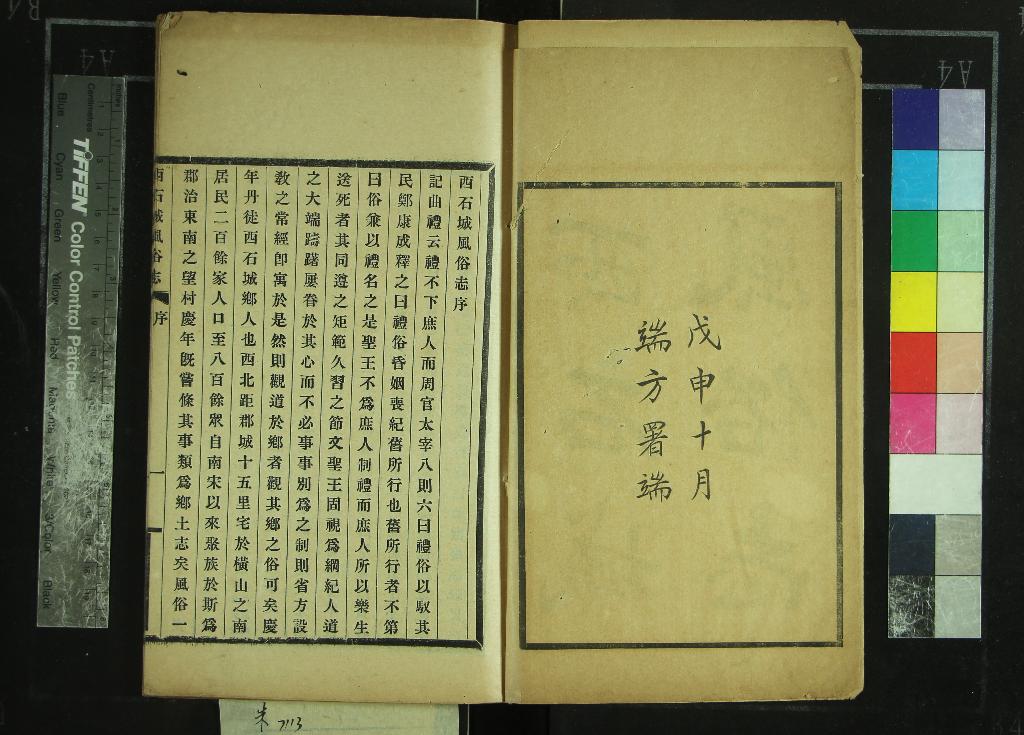 戊申十月
端方署端
西石城風俗志序
記曲禮云禮不下庶人而周官太宰八則六曰禮俗以馭其
民鄭康成釋之曰禮俗昏姻喪紀舊所行也舊所行者不第
曰俗兼以禮名之是聖王不爲庶人制禮而庶人所以樂生
送死者其同遵之矩範久習之節文聖王固視爲綱紀人道
之大端躊躇屢眷於其心而不必事事別爲之制則省方設
敎之常經卽寓於是然則觀道於鄕者觀其鄕之俗可矣慶
年丹徒西石城鄕人也西北距郡城十五里宅於橫山之南
居民二百餘家人口至八百餘眾自南宋以來聚族於斯爲
郡治東南之望村慶年既嘗條其事類爲鄕土志矣風俗一
西石城風俗志
序
一
TIFFEN Color Control Patches
Centimetres
Inches
Blue
Cyan
Green
Yellow
Red
Magenta
White
3/Color
Black
A4
A4
朱 7113